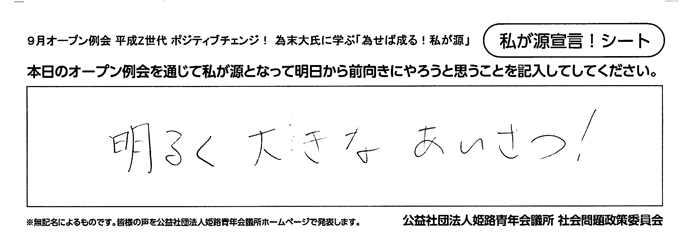 9月オープン例会 平成Z世代 ポジティブチェンジ！ 為末大氏に学ぶ「為せば成る！私が源」
私が源宣言！シート
本日のオープン例会を通じて私が源となって明日から前向きにやろうと思うことを記入してしてください。
明るく 大きな あいさつ！
※無記名によるものです。皆様の声を公益社団法人姫路青年会議所ホームページで発表します。
公益社団法人姫路青年会議所 社会問題政策委員会